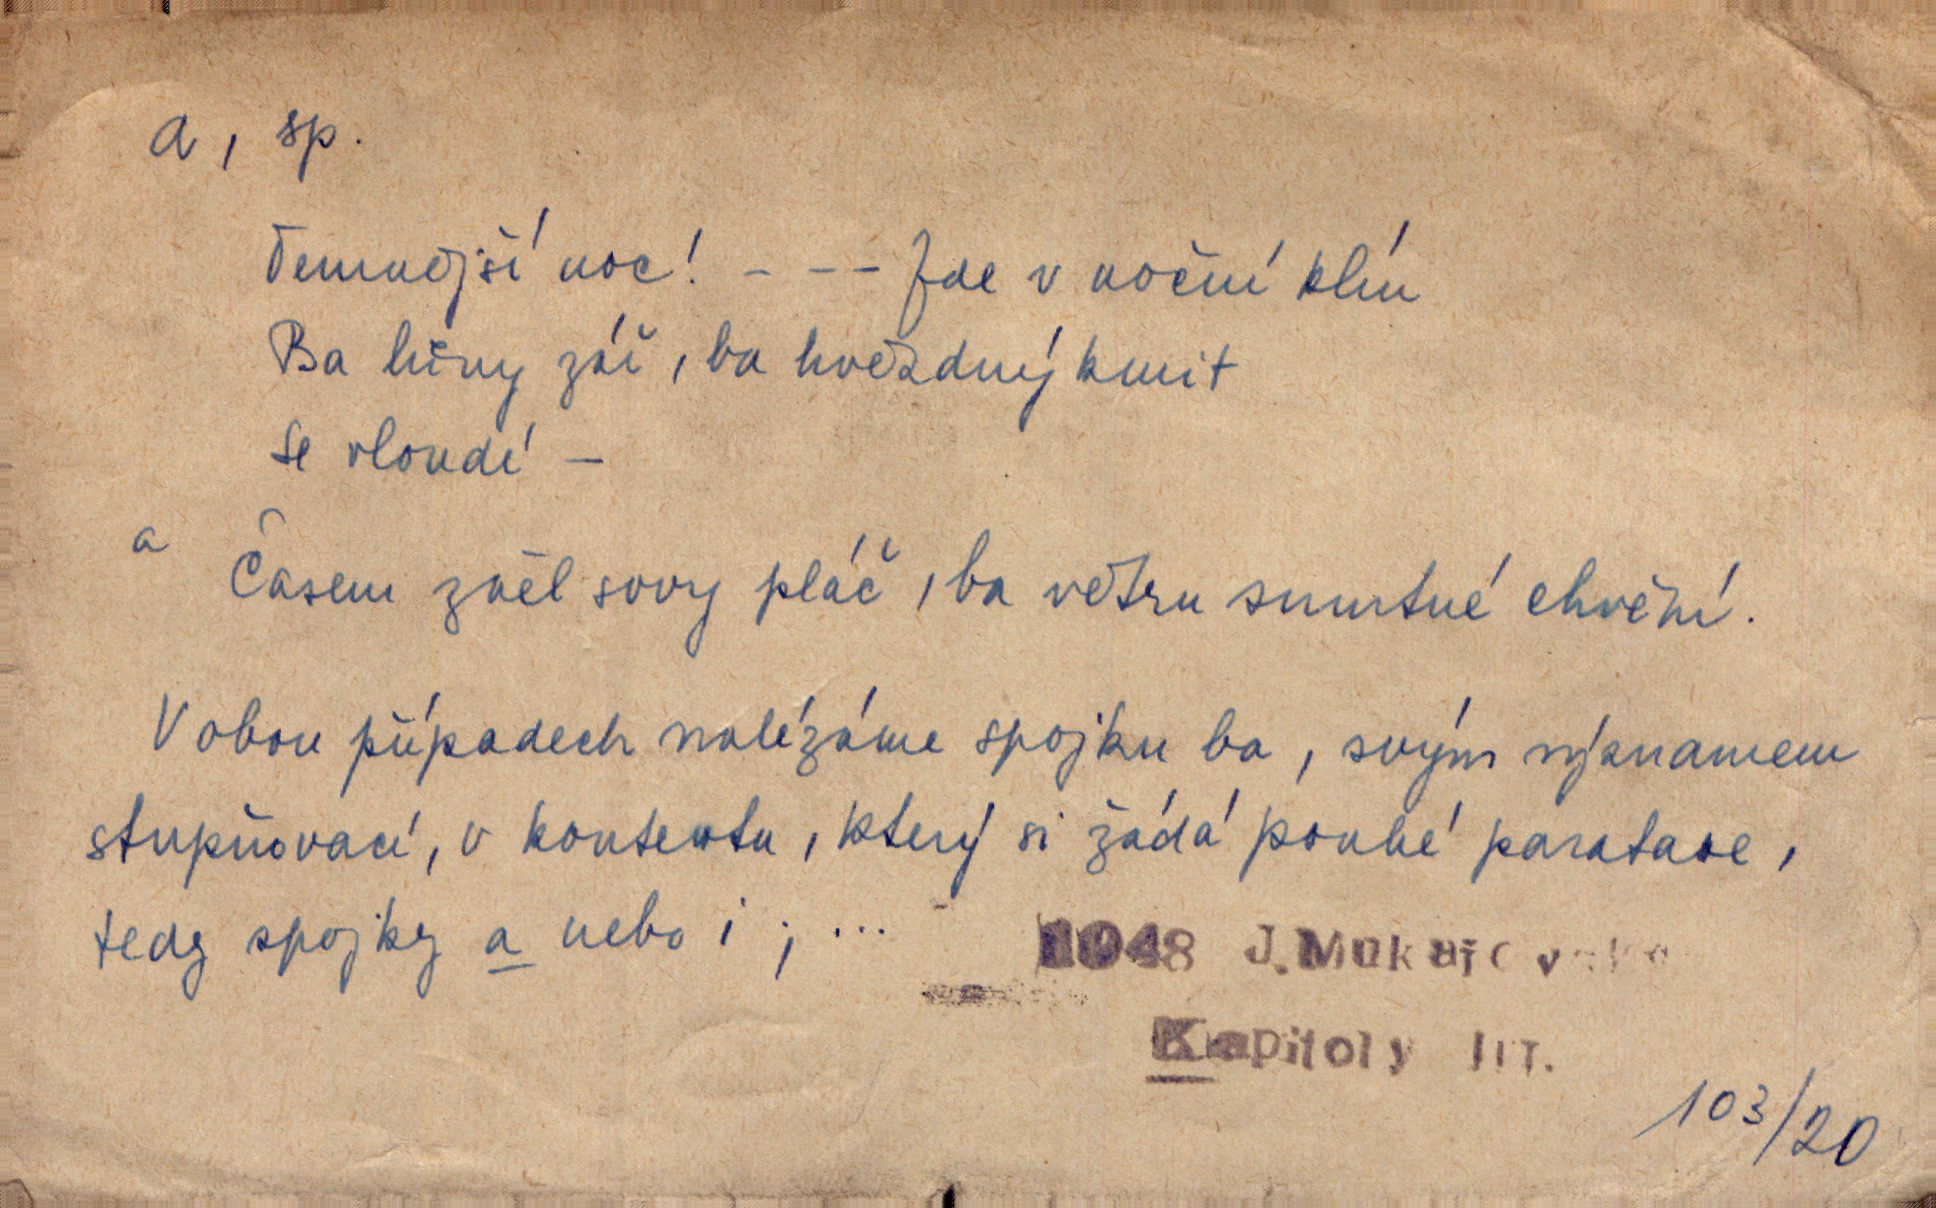 a, sp.
Temnější noc! - - - Zde v noční klín
Ba lůny zář, ba hvězdný kmit
Se vloudí –
a
Časem zněl sovy pláč, ba větru smutné chvění.
V obou případech nalézáme spojku ba, svým významem
stupňovací, v kontextu, který si žádá pouhé parataxe,
tedy spojky a nebo i; ...
1948 J. Mukařovský
Kapitoly III.
103/20